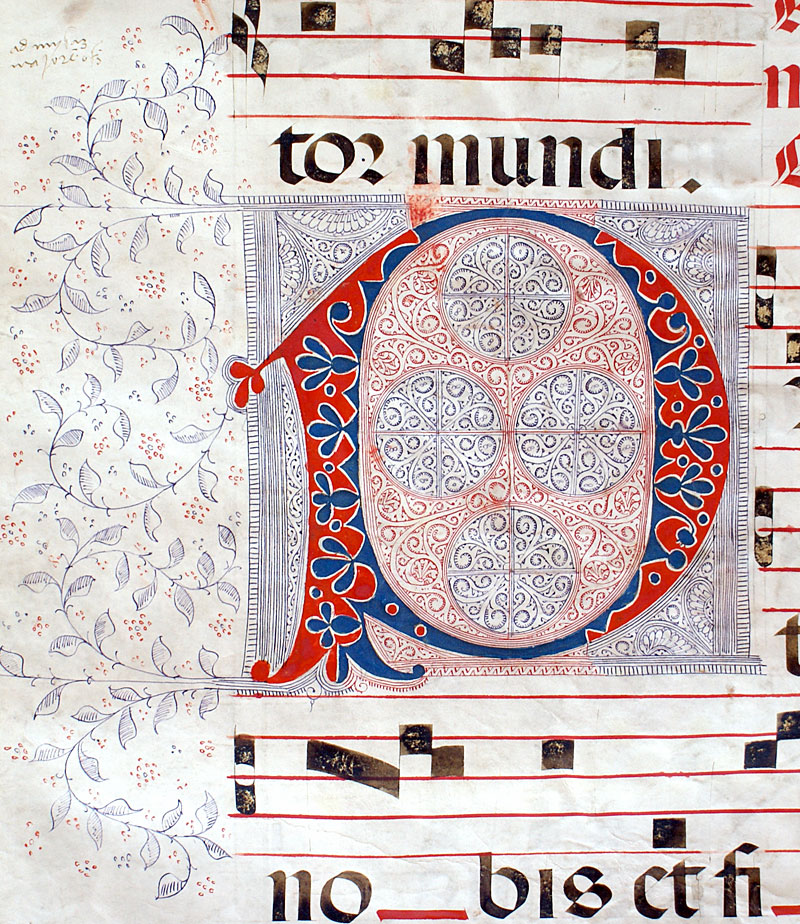 tor mundi.
P
no_bis et fi_